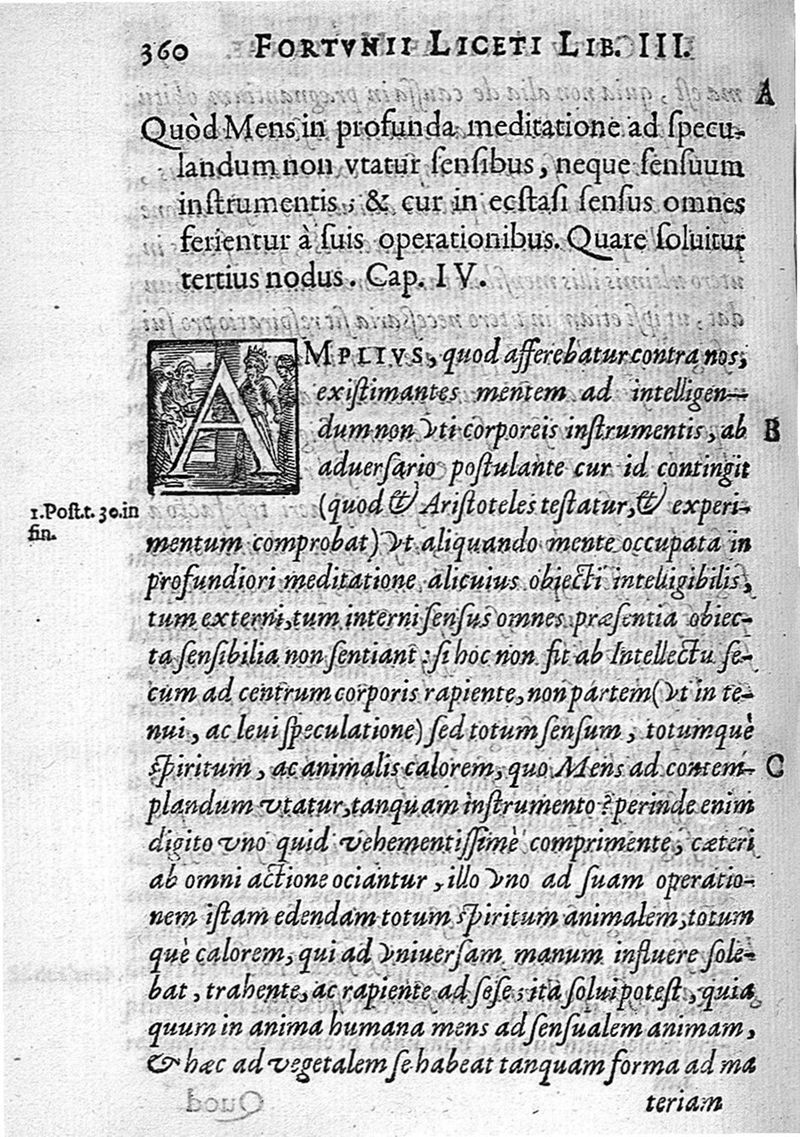 360 FORTVNII LICETI LIB. III.
A
Quòd Mens in profunda meditatione ad ſpecu-
landum non vtatur ſenſibus, neque ſenſuum
inſtrumentis; & cur in ecſtaſi ſenſus omnes
ferientur à ſuis operationibus. Quare ſoluitur
tertius nodus. Cap. IV.
AMPLIVS, quod afferebatur contra nos,
exiſtimantes mentem ad intelligen-
dum non vti corporeis inſtrumentis, ab B
aduerſario poſtulante cur id contingit
1.Poſt.t. 30.in (quod & Ariſtoteles teſtatur, & experi-
fin.
mentum comprobat) vt aliquando mente occupata in
profundiori meditatione alicuius obiecti intelligibilis,
tum externi, tum interni ſenſus omnes præſentia obiec-
ta ſenſibilia non ſentiant: ſi hoc non fit ab Intellectu ſe-
cum ad centrum corporis rapiente, non partem (vt in te-
nui, ac leui ſpeculatione) ſed totum ſenſum, totumquè
ſpiritum, ac animalis calorem, quo Mens ad contem- C
plandum vtatur, tanquam inſtrumento? perinde enim
digito vno quid vehementiſſimè comprimente, cæteri
ab omni actione ociantur, illo vno ad ſuam operatio-
nem iſtam edendam totum ſpiritum animalem, totum
què calorem, qui ad vniuerſam manum influere ſole-
bat, trahente, ac rapiente ad ſeſe; ita ſolui poteſt, quia
quum in anima humana mens ad ſenſualem animam,
& hæc ad vegetalem ſe habeat tanquam forma ad ma
teriam